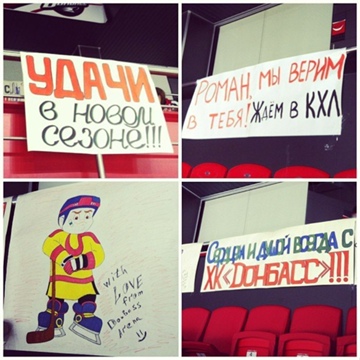 УДАЧИ
в новом
сезоне!!!
Роман, мы верим
в тебя! Ждём в КХЛ
with
LOVE
from
Donbass
Arena
Сердцем и душой всегда с
ХК «Донбасс»!!!